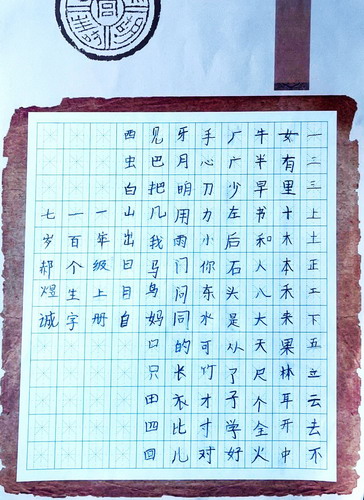 一二三上土正工下五立云去不
女有里十木本禾来果林耳开中
牛半早书和人八大天尺个全火
厂广少左后石头是从了子学好
手心刀力小你东水可竹才寸对
牙月明用雨门问同的长衣比儿
见巴把几我马鸟妈口只田四回
西虫白山出日目自
一年级上册
一百个生字
七岁郝煜诚